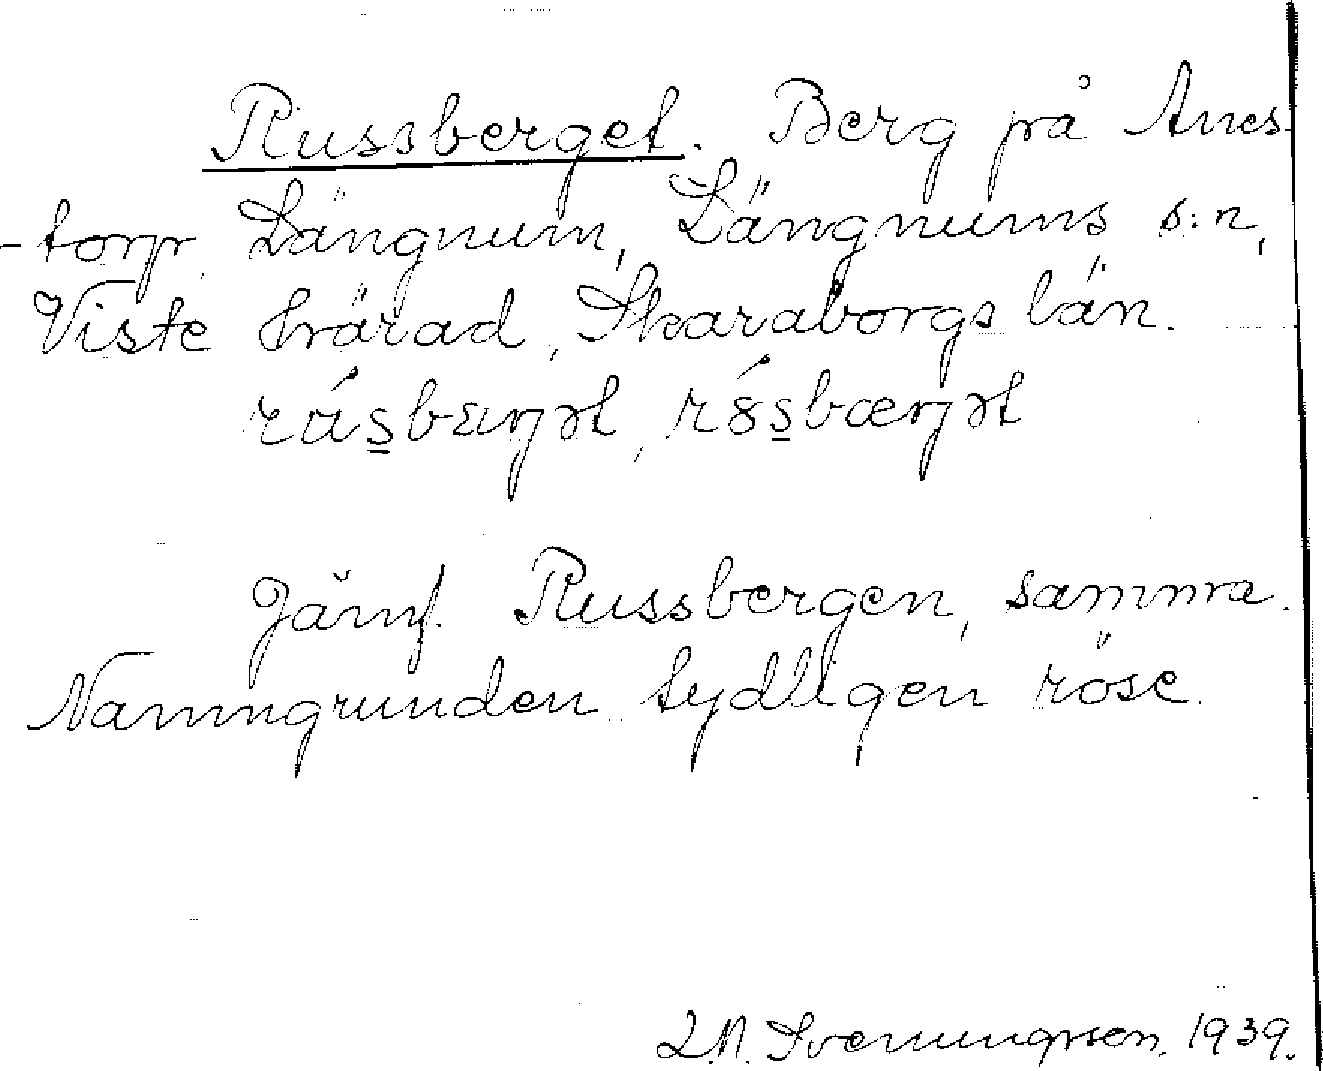 Russberget. Berg på Anes-
-torp. Längnum, Längnums s:n,
Viste härad, Skaraborgs län.
Jämf. Russbergen, samma.
Namngrunden tydligen röse.
1939.